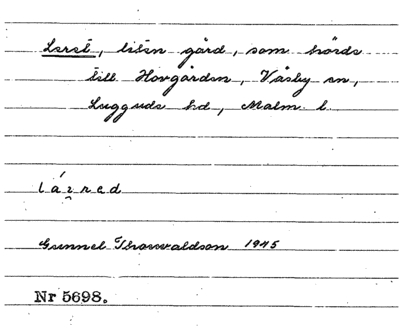 Leret, liten gård, som hörde
till Hovgården, Väsby sn,
Luggude hd, Malm. l.
Gunnel Thorwaldson 1945
Nr 5698.